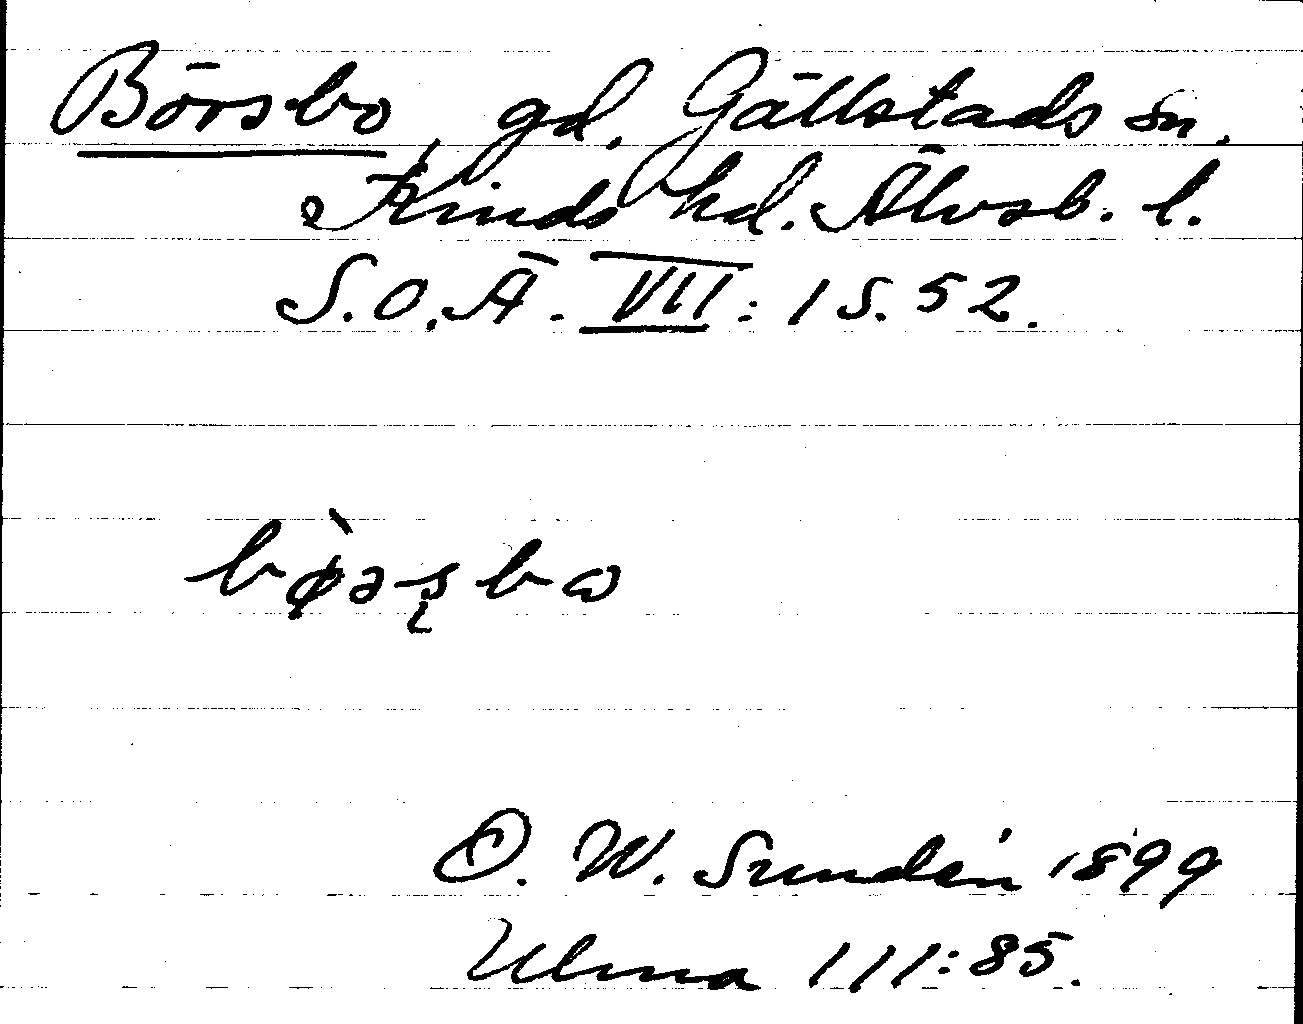 Börsbo, gd. Gällstads sn.
Kinds hd. Älvsb. l.
S.O.Ä. VII: 1 S. 52.
bø̀əʂbω
O. W. Sundén 1899
Ulma 111:85.